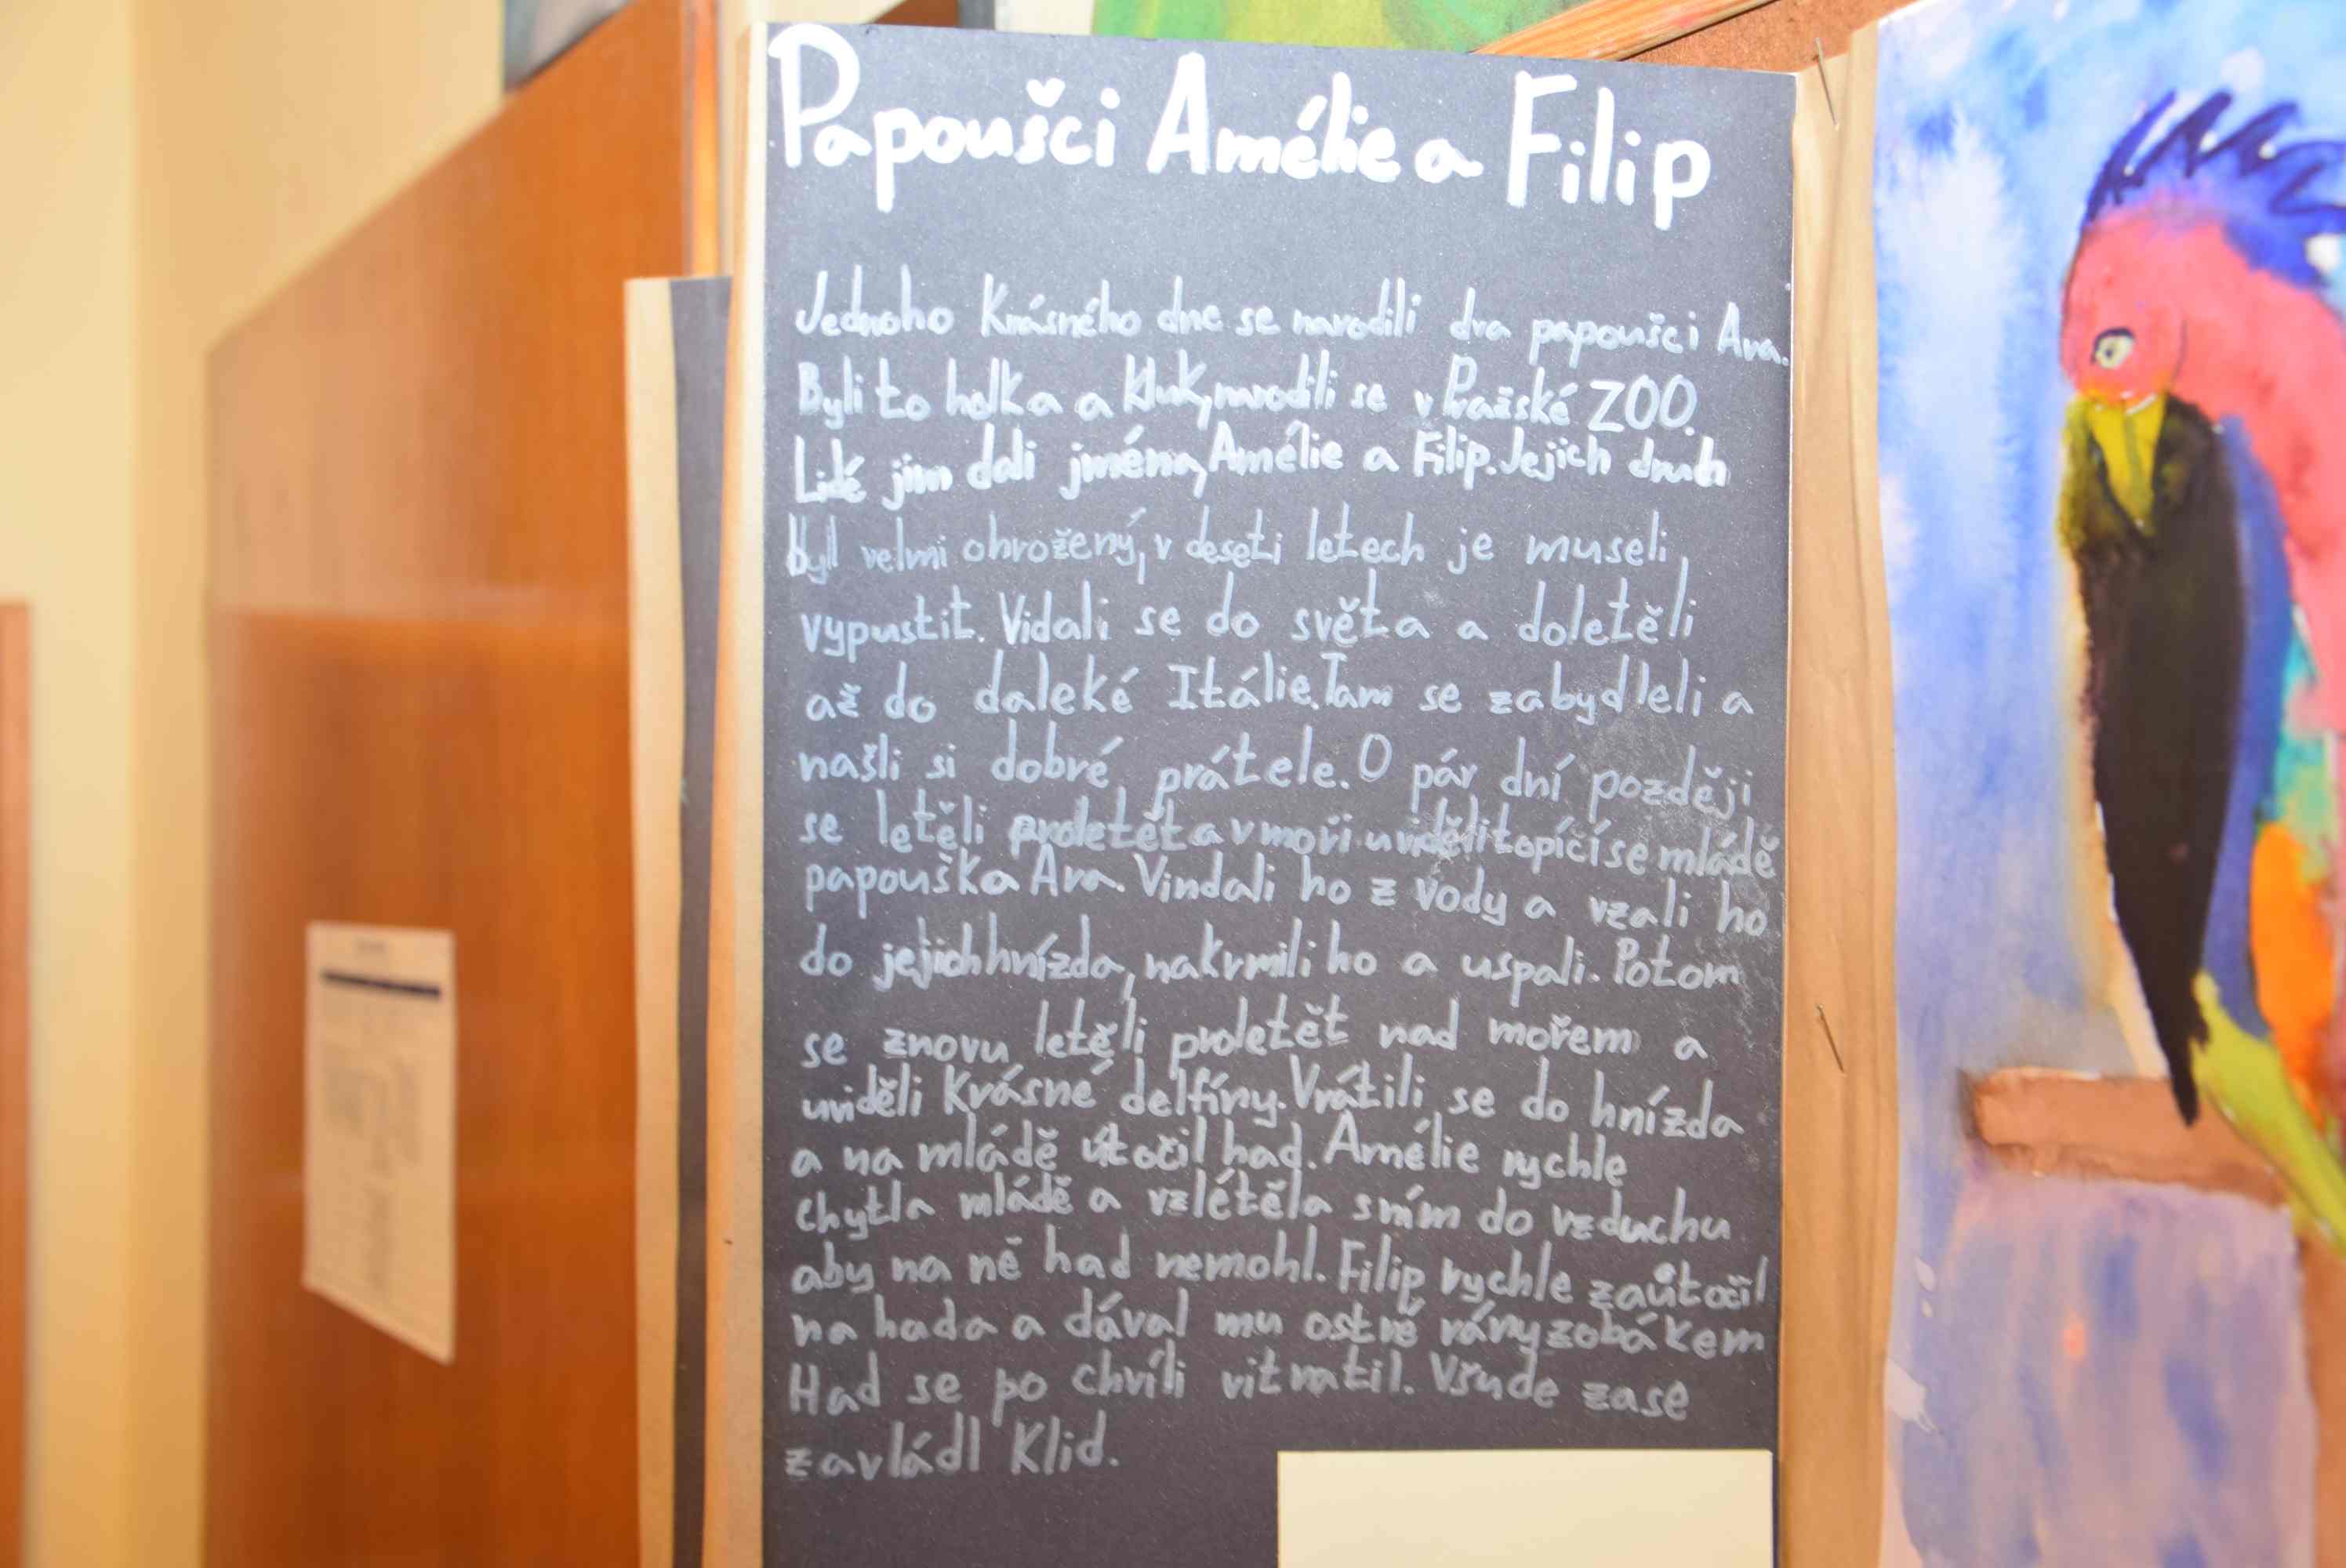 Papoušci Amélie a Filip
Jednoho Krásného dne se narodili dva papoušci Ara.
Byli to holka a Kluk, narodili se v Pražské ZOO.
Lidé jim dali jména, Amélie a Filip. Jejich druh
byl velmi ohrožený, v deseti letech je museli
vypustit. Vidali se do světa a doletěli
až do daleké Itálie. Tam se zabydleli a
našli si dobré prátele. O pár dní později
se letěli proletět a v moři uviděli topící se mládě
papouška Ara. Vindali ho z vody a vzali ho
do jejich hnízda, nakrmili ho a uspali. Potom
se znovu letěli proletět nad mořem a
uviděli Krásné delfíny. Vrátili se do hnízda
a na mládě útočil had. Amélie rychle
chytla mládě a vzlétěla s ním do vzduchu
aby na ně had nemohl. Filip rychle zaútočil
na hada a dával mu ostré rány zobákem
Had se po chvíli vitratil. Všude zase
zavládl Klid.